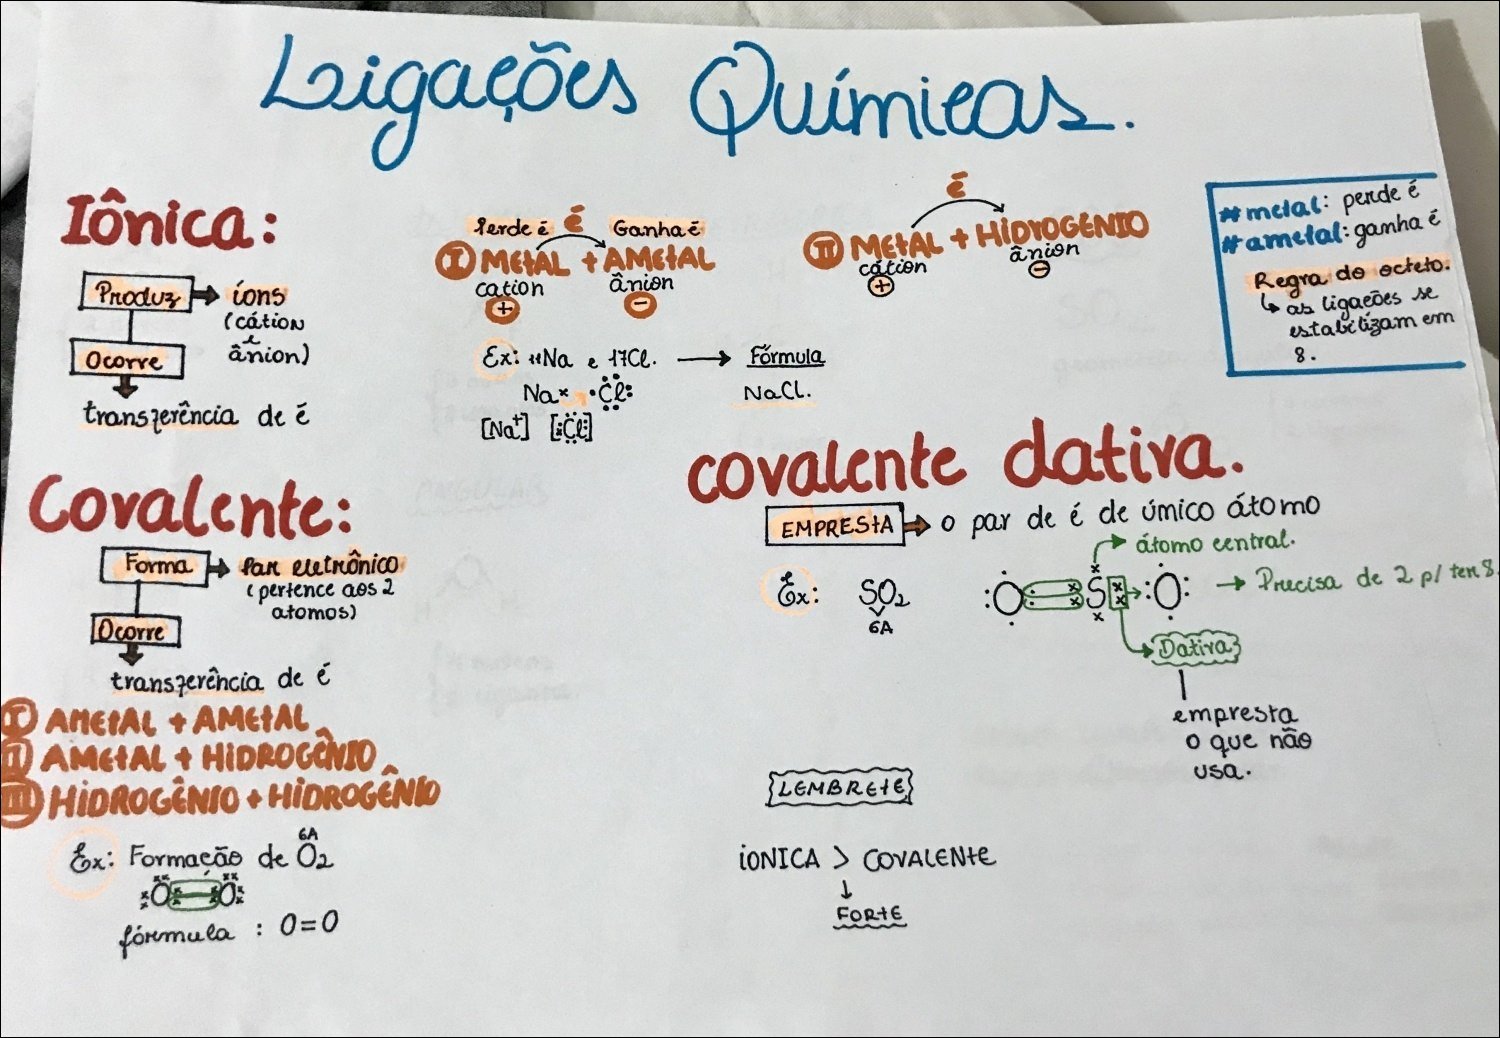 Ligações Químicas.
Iônica:
Produz → íons
(cátion
e
ânion)
Ocorre
transferência de é
Perde é é Ganha é
I METAL + AMETAL
cation ânion
+ −
Ex: 11Na e 17Cl. → Fórmula
Na× •Cl: NaCl.
[Na⁺] [:Cl:]
é
II METAL + HIDROGÊNIO
cátion ânion
+ −
# metal: perde é
# ametal: ganha é
Regra do octeto.
↳ as ligações se
estabilizam em
8.
Covalente:
Forma → Par eletrônico
(pertence aos 2
atomos)
Ocorre
transferência de é
I AMETAL + AMETAL
II AMETAL + HIDROGÊNIO
III HIDROGÊNIO + HIDROGÊNIO
Ex: Formação de O2
6A
O O
fórmula : O=O
covalente dativa.
EMPRESTA → o par de é de úmico átomo
átomo central.
Ex: SO2 :O S :O: → Precisa de 2 p/ ter 8.
6A
Dativa
empresta
o que não
usa.
LEMBRETE
iONICA > COVALENTE
↓
FORTE